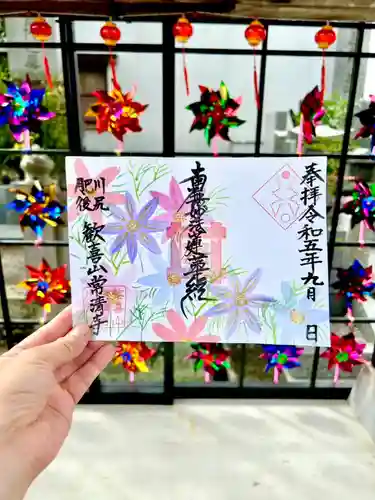 奉拝 令和五年九月 日
南無妙法蓮華経
川尻
肥後
歓喜山常清寺